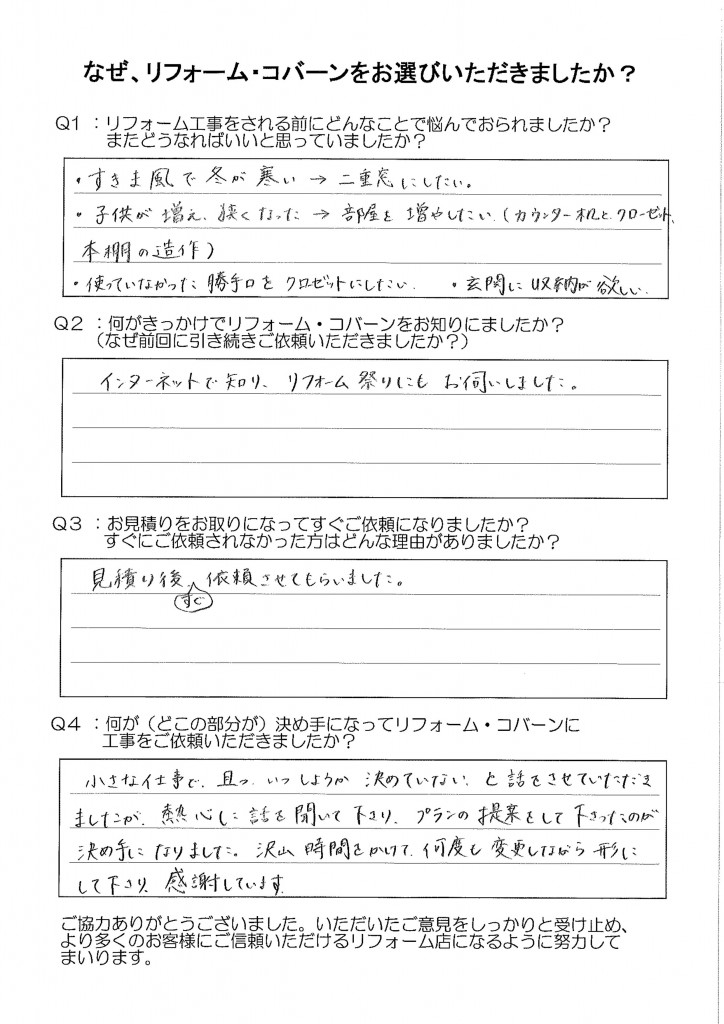 なぜ、リフォーム・コバーンをお選びいただきましたか？
Q1 ：リフォーム工事をされる前にどんなことで悩んでおられましたか？
またどうなればいいと思っていましたか？
・すきま風で冬が寒い → 二重窓にしたい。
・子供が増え、狭くなった → 部屋を増やしたい（カウンター机とクローゼット、
本棚の造作）
・使っていなかった勝手口をクロゼットにしたい. ・玄関に収納が欲しい.
Q2 ：何がきっかけでリフォーム・コバーンをお知りにましたか？
（なぜ前回に引き続きご依頼いただきましたか？）
インターネットで知り、リフォーム祭りにもお伺いしました。
Q3 ：お見積りをお取りになってすぐご依頼になりましたか？
すぐにご依頼されなかった方はどんな理由がありましたか？
見積り後、すぐ依頼させてもらいました。
Q4 ：何が（どこの部分が）決め手になってリフォーム・コバーンに
工事をご依頼いただきましたか？
小さな仕事で、且つ、いつしようか決めていない、と話をさせていただき
ましたが、熱心に話を聞いて下さり、プランの提案をして下さったのが
決め手になりました。沢山時間をかけて、何度も変更しながら形に
して下さり、感謝しています.
ご協力ありがとうございました。いただいたご意見をしっかりと受け止め、
より多くのお客様にご信頼いただけるリフォーム店になるように努力して
まいります。